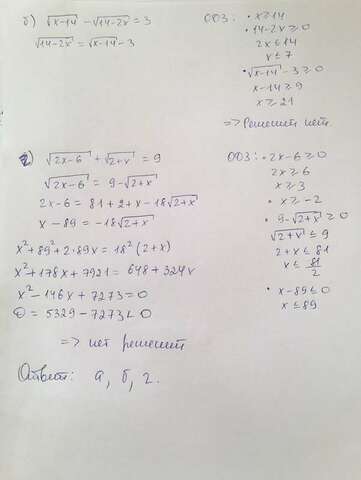 б) √x-14 - √14-2x = 3
√14-2x = √x-14 - 3
ОДЗ: • x≥14
• 14-2x ≥ 0
2x ≤ 14
x ≤ 7
• √x-14 - 3 ≥ 0
x-14 ≥ 9
x ≥ 21
=> Решений нет.
г) √2x-6 + √2+x = 9
√2x-6 = 9-√2+x
2x-6 = 81+2+x-18√2+x
x-89 = -18√2+x
x²+89²+2·89x = 18²(2+x)
x²+178x+7921 = 648+324x
x²-146x+7273=0
D = 5329-7273<0
=> нет решений
ОДЗ: • 2x-6 ≥ 0
2x ≥ 6
x ≥ 3
• x ≥ -2
• 9-√2+x ≥ 0
√2+x ≤ 9
2+x ≤ 81
x ≤ 81/2
• x-89 ≤ 0
x ≤ 89
Ответ: а, б, г.